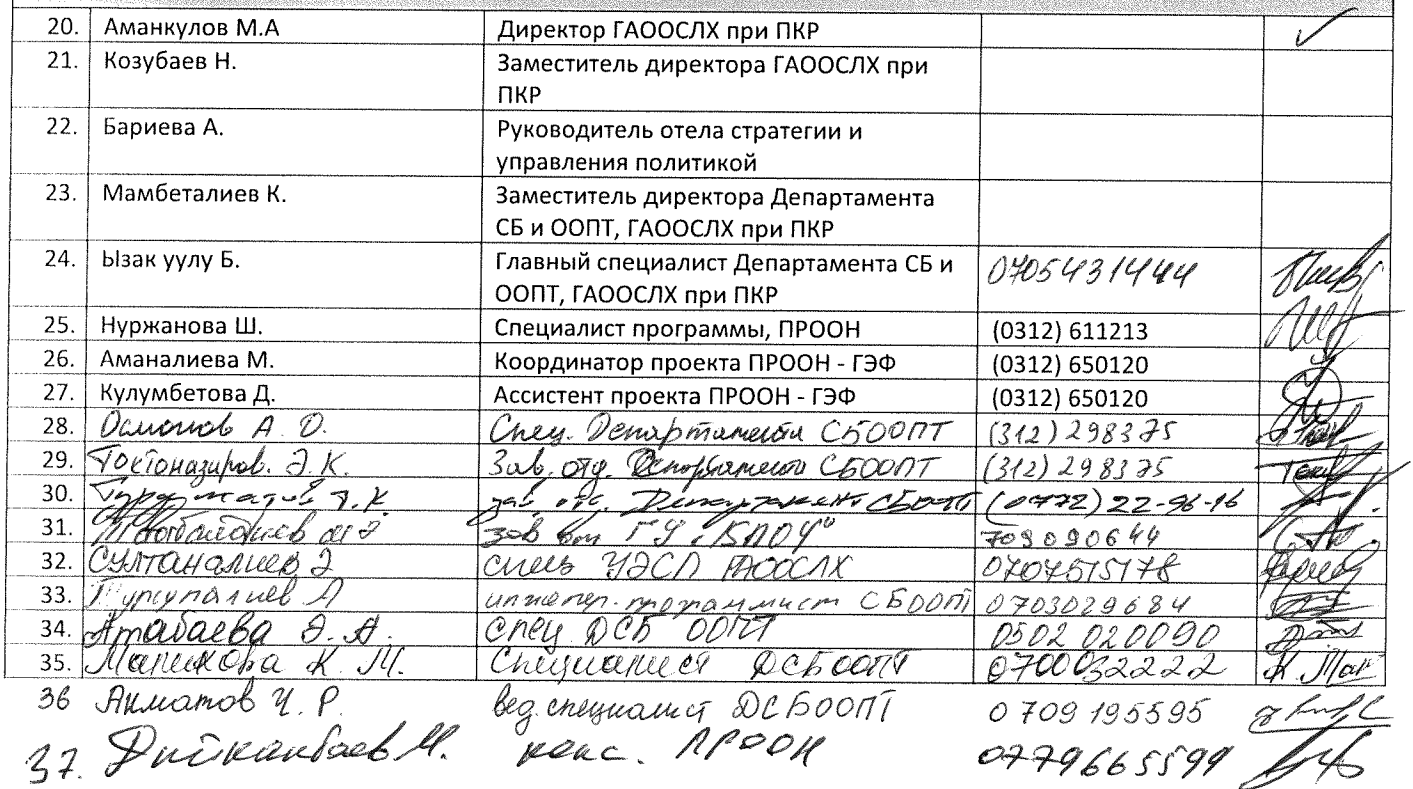 20. Аманкулов М.А Директор ГАООСЛХ при ПКР
21. Козубаев Н. Заместитель директора ГАООСЛХ при
ПКР
22. Бариева А. Руководитель отела стратегии и
управления политикой
23. Мамбеталиев К. Заместитель директора Департамента
СБ и ООПТ, ГАООСЛХ при ПКР
24. Ызак уулу Б. Главный специалист Департамента СБ и 0705431444
ООПТ, ГАООСЛХ при ПКР
25. Нуржанова Ш. Специалист программы, ПРООН (0312) 611213
26. Аманалиева М. Координатор проекта ПРООН - ГЭФ (0312) 650120
27. Кулумбетова Д. Ассистент проекта ПРООН - ГЭФ (0312) 650120
28. Осмонов А. О. Спец. Департамента СБООПТ (312) 298375
29. Токтоназиров. Э. К. Зав. отд. Департамента СБООПТ (312) 298375
30. зав. отд. Департамент СБООПТ (0772) 22-96-16
31. зав ГУ 709090644
32. Султаналиев Э спец УЭСЛ ГАООСЛХ 0707515178
33. инженер-программист СБООПТ 0703029684
34. Атабаева Э. А. спец ДСБ ООПТ 0502 020090
35. Маликова К. М. Специалист ДСБООПТ 0700032222
36 Акматов Ч. Р. вед. специалист ДСБООПТ 0709 195595
37. Дыйканбаев М. конс. ПРООН 0779665599